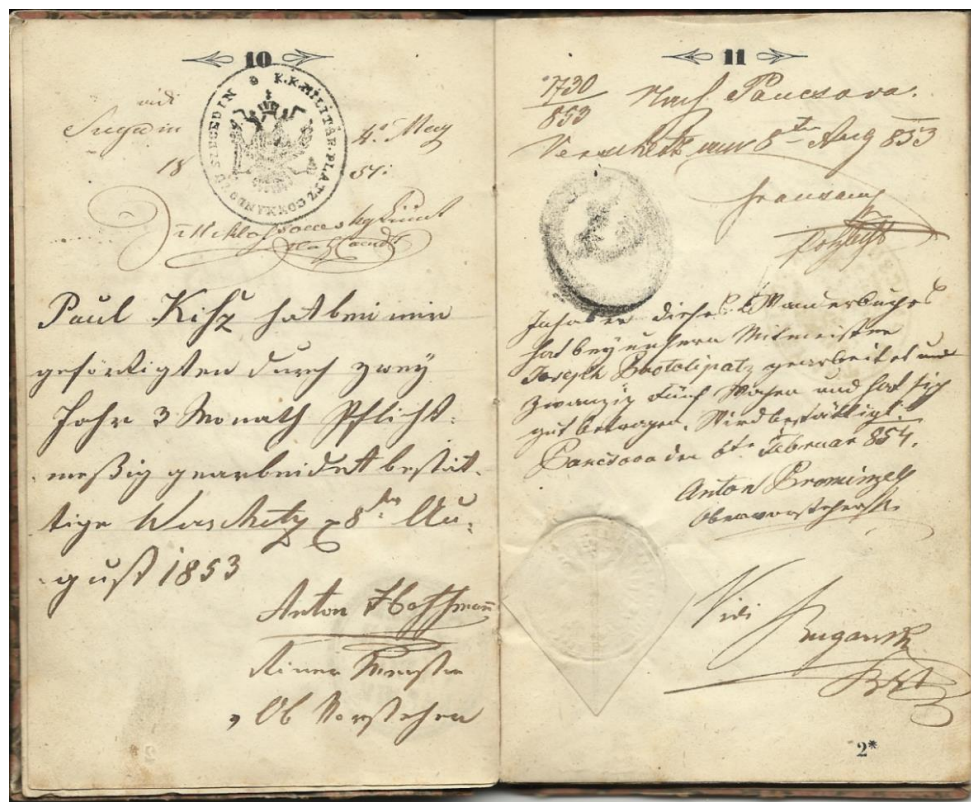 10
K.K. MILITÄR-PLATZ COMANDO ZU SZEGEDIN
vidi
Szegedin 4t May
18 51.
Paul Kihz hat bei mir
geförtigten durch zwey
Jahr 3 Monath Pflicht-
meßig gearbeidet bestät-
tige Waschetz 8ten Au-
gust 1853
Anton Hoffmann
Ob Vorstehen
11
1730
853
Nach Pancsova.
8ten Aug 853
Inhaber dieses Wanderbuches
hat bey unsern Mitmeister
Joseph gearbeitet und
zwanzig fünf Wochen und hat sich
gut betragen. Wird bestättigt.
Pancsova den 6ten Februar 854.
Anton
Obervorsteher
Vidi
2*